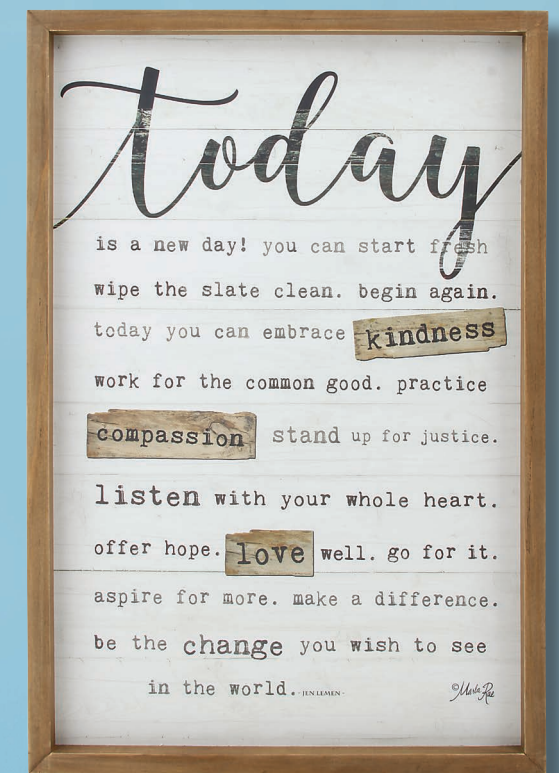 today
is a new day! you can start fresh
wipe the slate clean. begin again.
today you can embrace kindness
work for the common good. practice
compassion stand up for justice.
listen with your whole heart.
offer hope. love well. go for it.
aspire for more. make a difference.
be the change you wish to see
in the world. - JEN LEMEN -
©Marla Rae